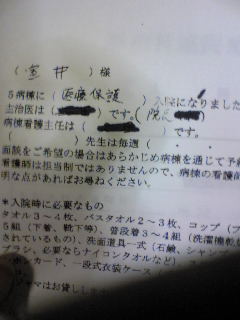 (室井)様
5病棟に(医療保護)入院になりました
主治医は( )です。(院
病棟看護主任は( )です。
( )先生は毎週(
面談をご希望の場合はあらかじめ病棟を通じて予約
看護師は担当制ではありませんので、病棟の看護師
明な点があればお尋ねください。
*入院時に必要なもの
タオル3〜4枚、バスタオル2〜3枚、コップ(プ
5組(下着、靴下等)、普段着3〜4組(洗濯機乾燥
されているもの)、洗面道具一式(石鹸、シャンプ
ブラシ、必要ならナイロンタオルなど)、
ンカード、一段式衣装ケース
ジャマはお貸しします